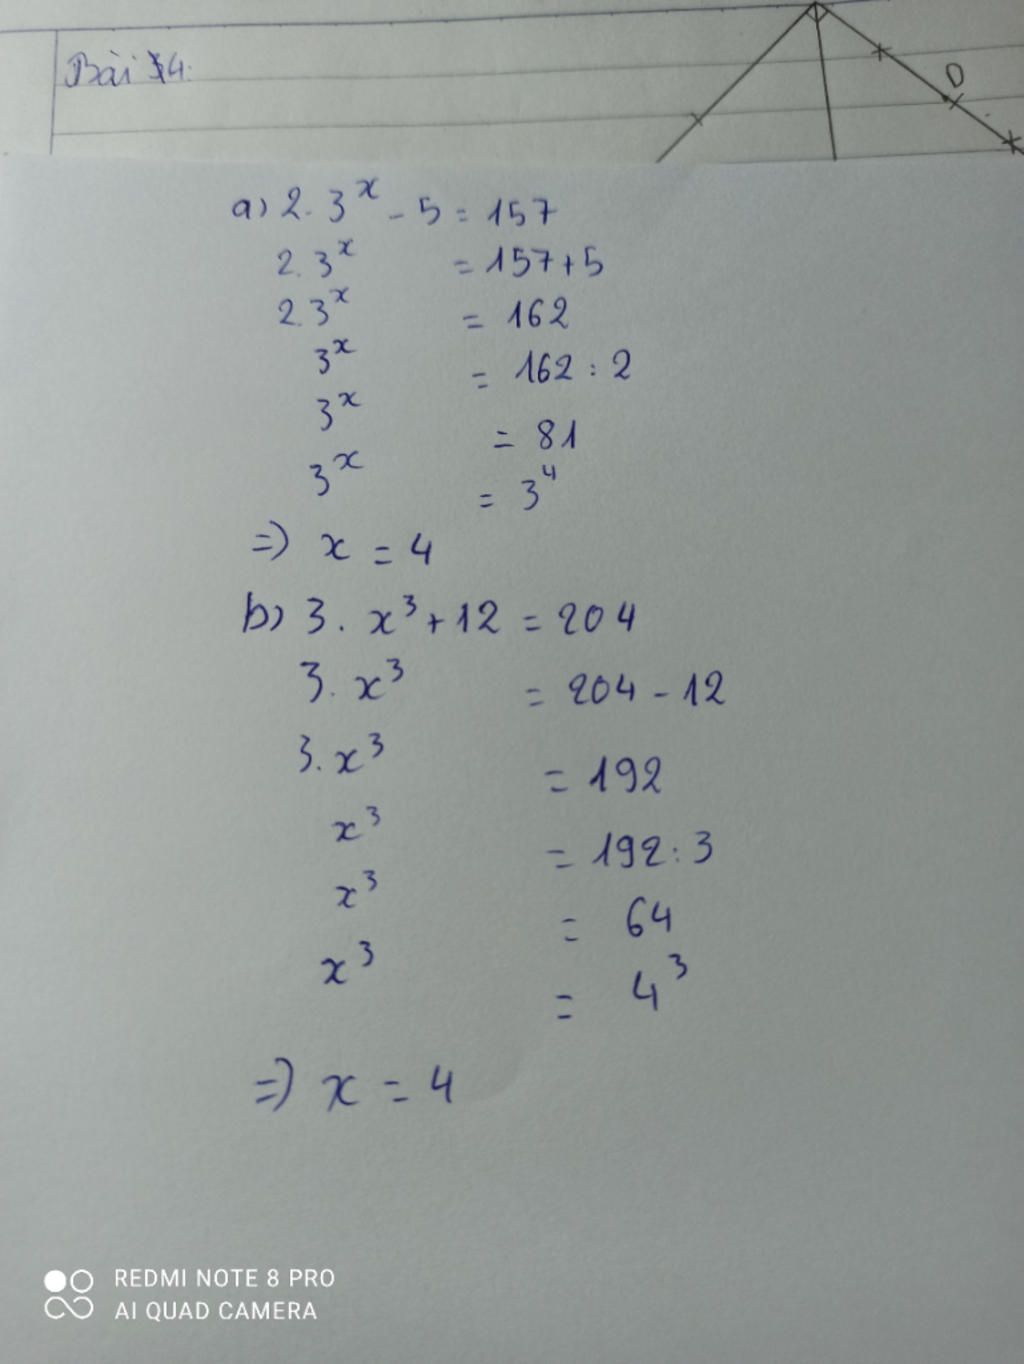 Bài 4:
D
a) 2. 3^x - 5 = 157
2. 3^x = 157 + 5
2. 3^x = 162
3^x = 162 : 2
3^x = 81
3^x = 3^4
=> x = 4
b) 3. x^3 + 12 = 204
3. x^3 = 204 - 12
3. x^3 = 192
x^3 = 192 : 3
x^3 = 64
x^3 = 4^3
=> x = 4
REDMI NOTE 8 PRO
AI QUAD CAMERA